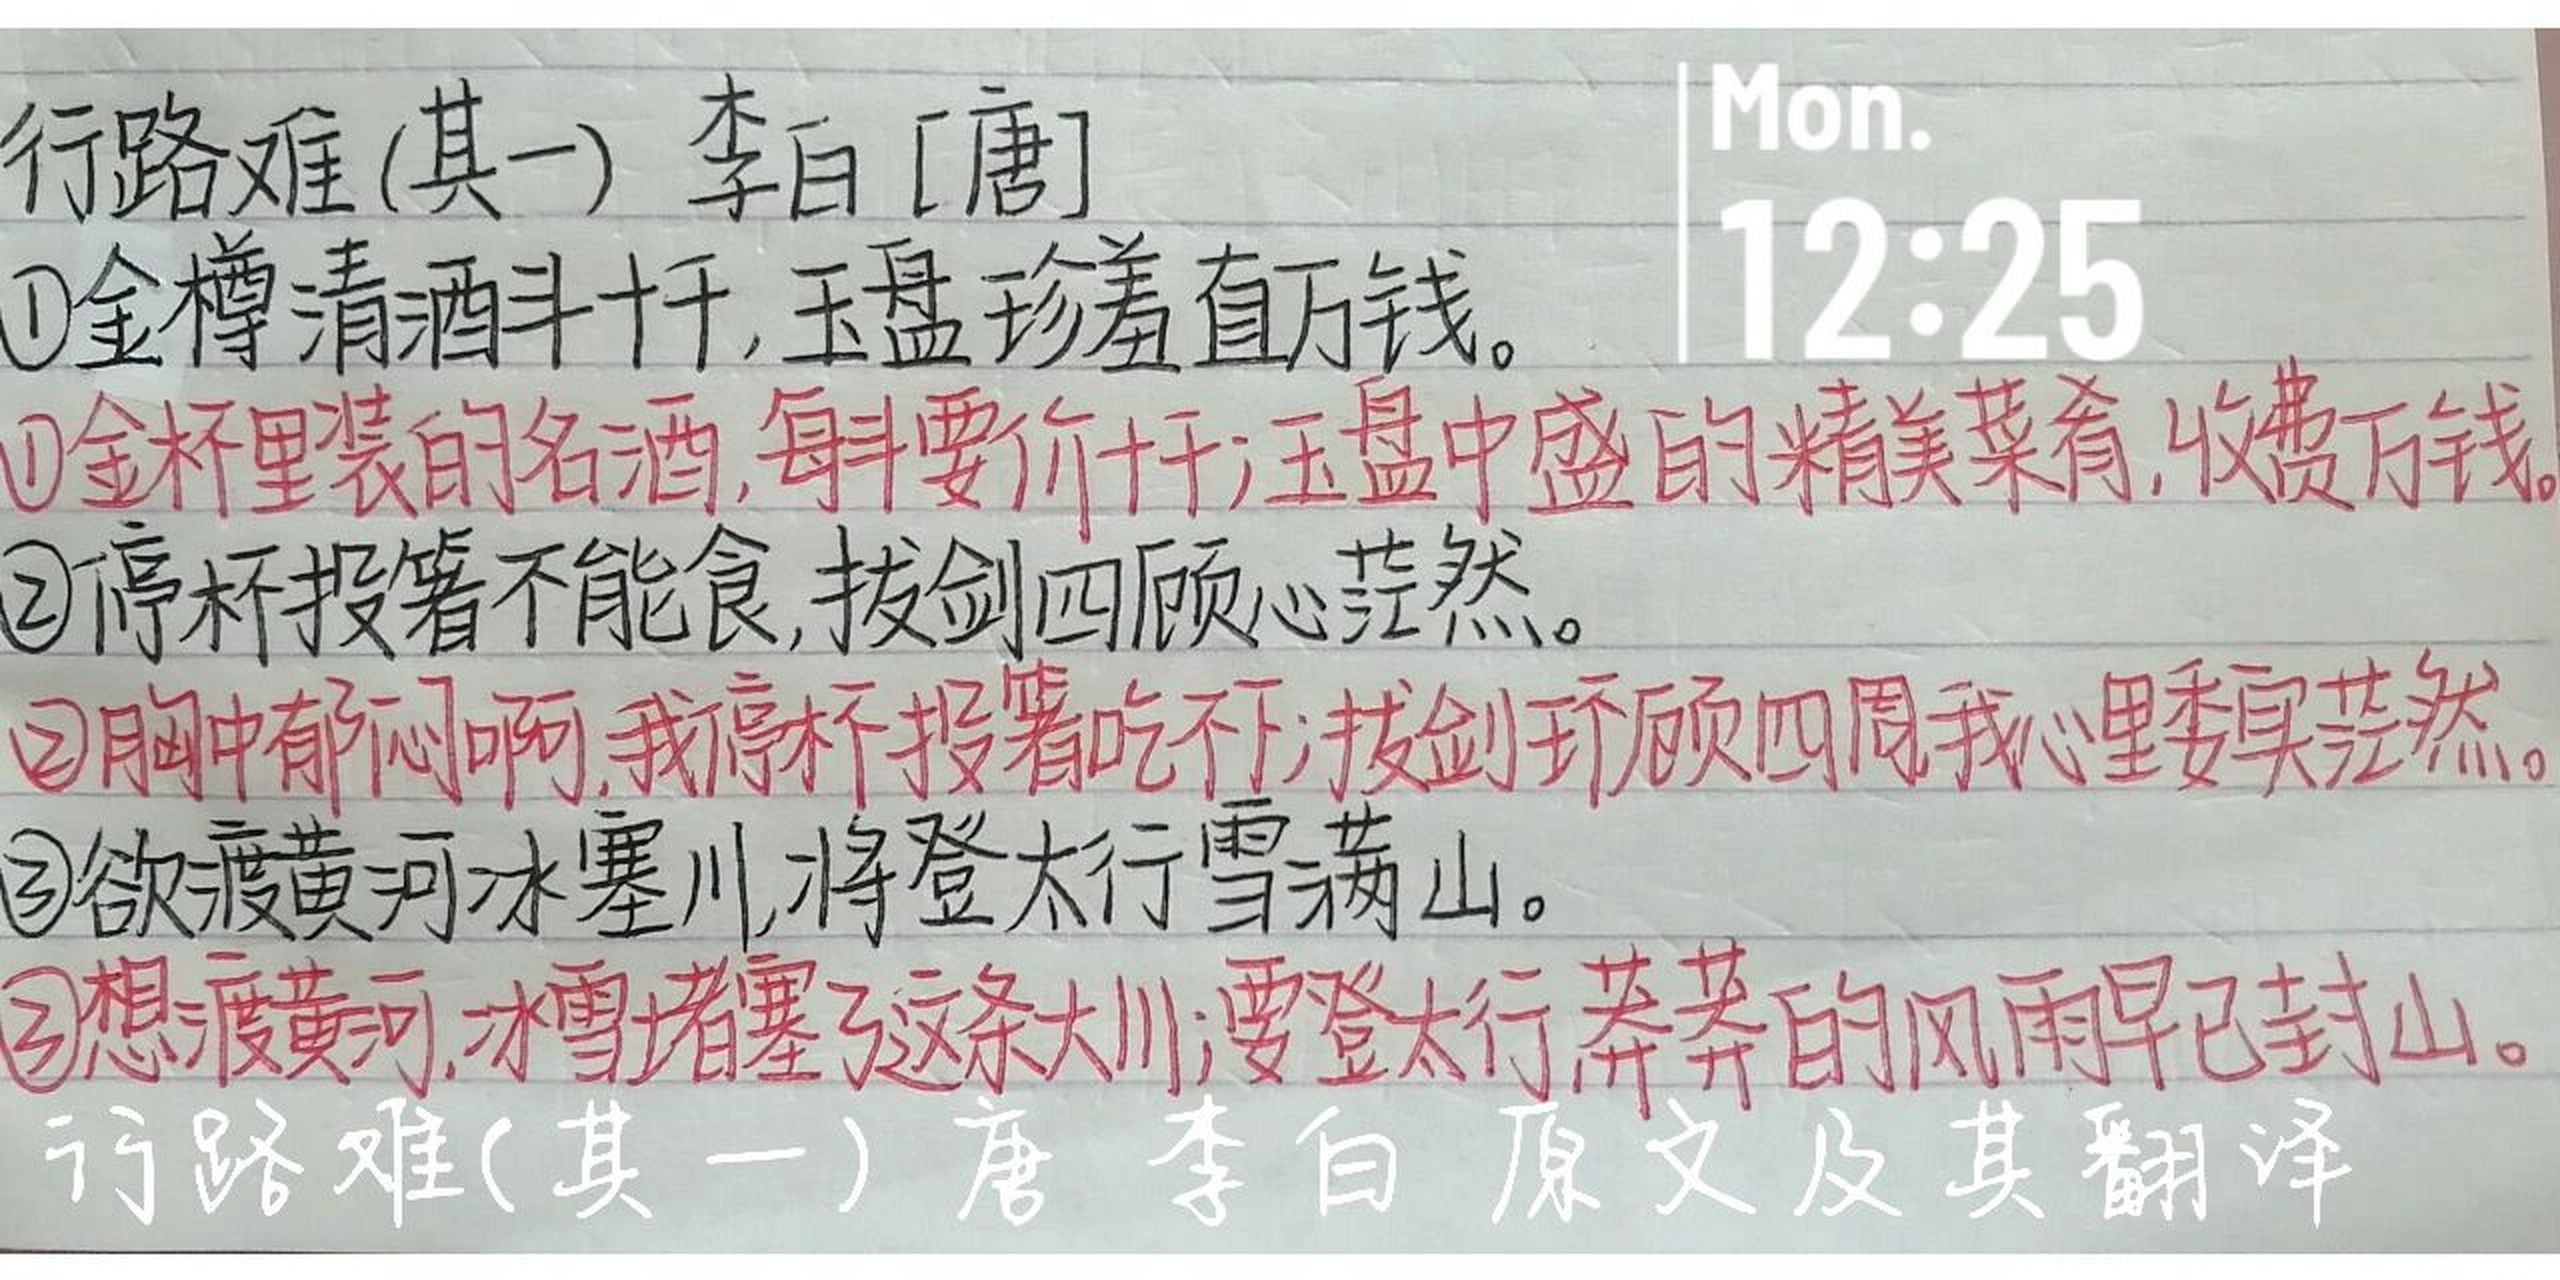 行路难(其一) 李白[唐]
Mon.
12:25
①金樽清酒斗十千,玉盘珍羞直万钱。
①金杯里装的名酒,每斗要价十千;玉盘中盛的精美菜肴,收费万钱。
②停杯投箸不能食,拔剑四顾心茫然。
②胸中郁闷啊,我停杯投箸吃不下;拔剑环顾四周我心里委实茫然。
③欲渡黄河冰塞川,将登太行雪满山。
③想渡黄河,冰雪堵塞了这条大川;要登太行莽莽的风雨早已封山。
行路难(其一)唐 李白 原文及其翻译